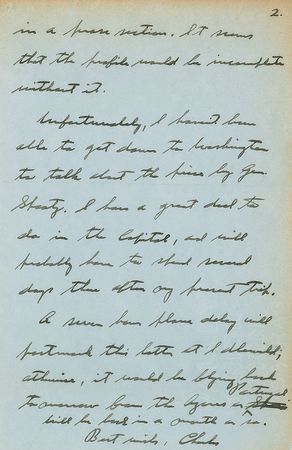 2.
in a prose section. It seems
that the profile would be incomplete
without it.
Unfortunately, I haven't been
able to get down to Washington
to talk about the piece by Gen.
Spaatz. I have a great deal to
do in the Capital, and will
probably have to spend several
days there after my present trip.
A seven hour plane delay will
postmark this letter at Idlewild;
otherwise, it would be flying back
tomorrow from the Azores or
Portugal
Will be back in a month or so.
Best wishes, Charles